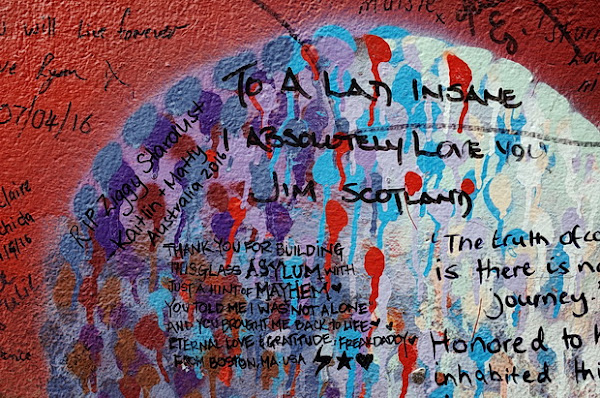 will live forever
Lynn X
07/04/16
TO A LAD INSANE
I ABSOLUTELY LOVE YOU
JIM SCOTLAND
R.I.P Ziggy Stardust
Kaitlin + Matty
Australia 2016
Claire
THANK YOU FOR BUILDING
THIS GLASS ASYLUM WITH
JUST A HINT OF MAYHEM
YOU TOLD ME I WAS NOT ALONE
AND YOU BROUGHT ME BACK TO LIFE
ETERNAL LOVE & GRATITUDE, FREAKDADDY
FROM BOSTON, MA USA
"The truth of co
is there is no
journey.
Honored to h
inhabited thi